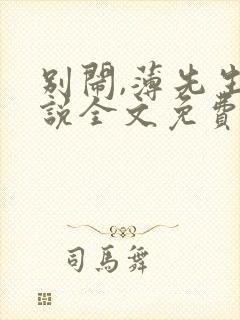 別鬧,薄先生
說全文免費
司馬舞